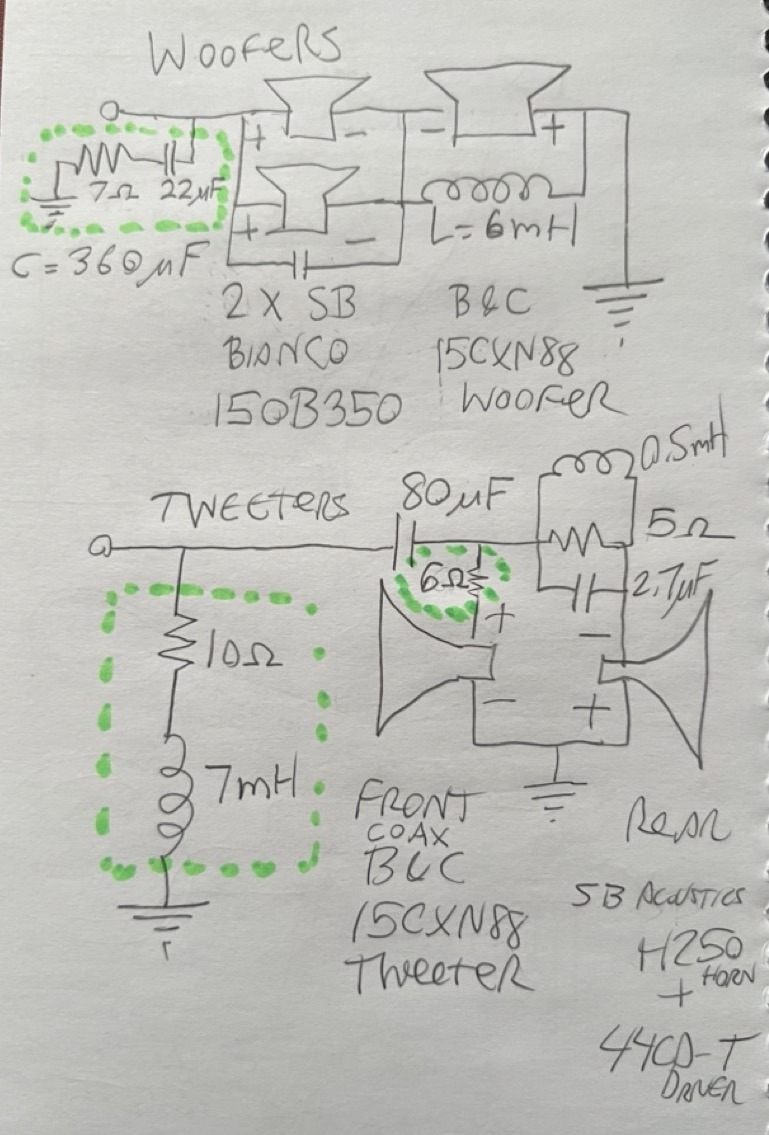 WOOFERS
+
-
-
+
7Ω 22μF
+
-
L=6mH
C=360μF
2 X SB
BIANCO
15OB350
B&C
15CXN88
WOOFER
0.5mH
TWEETERS
80μF
5Ω
6Ω
2.7μF
+
-
10Ω
-
+
7mH
FRONT
COAX
B&C
15CXN88
TWEETER
REAR
SB ACOUSTICS
H250
HORN
+
44CD-T
DRIVER